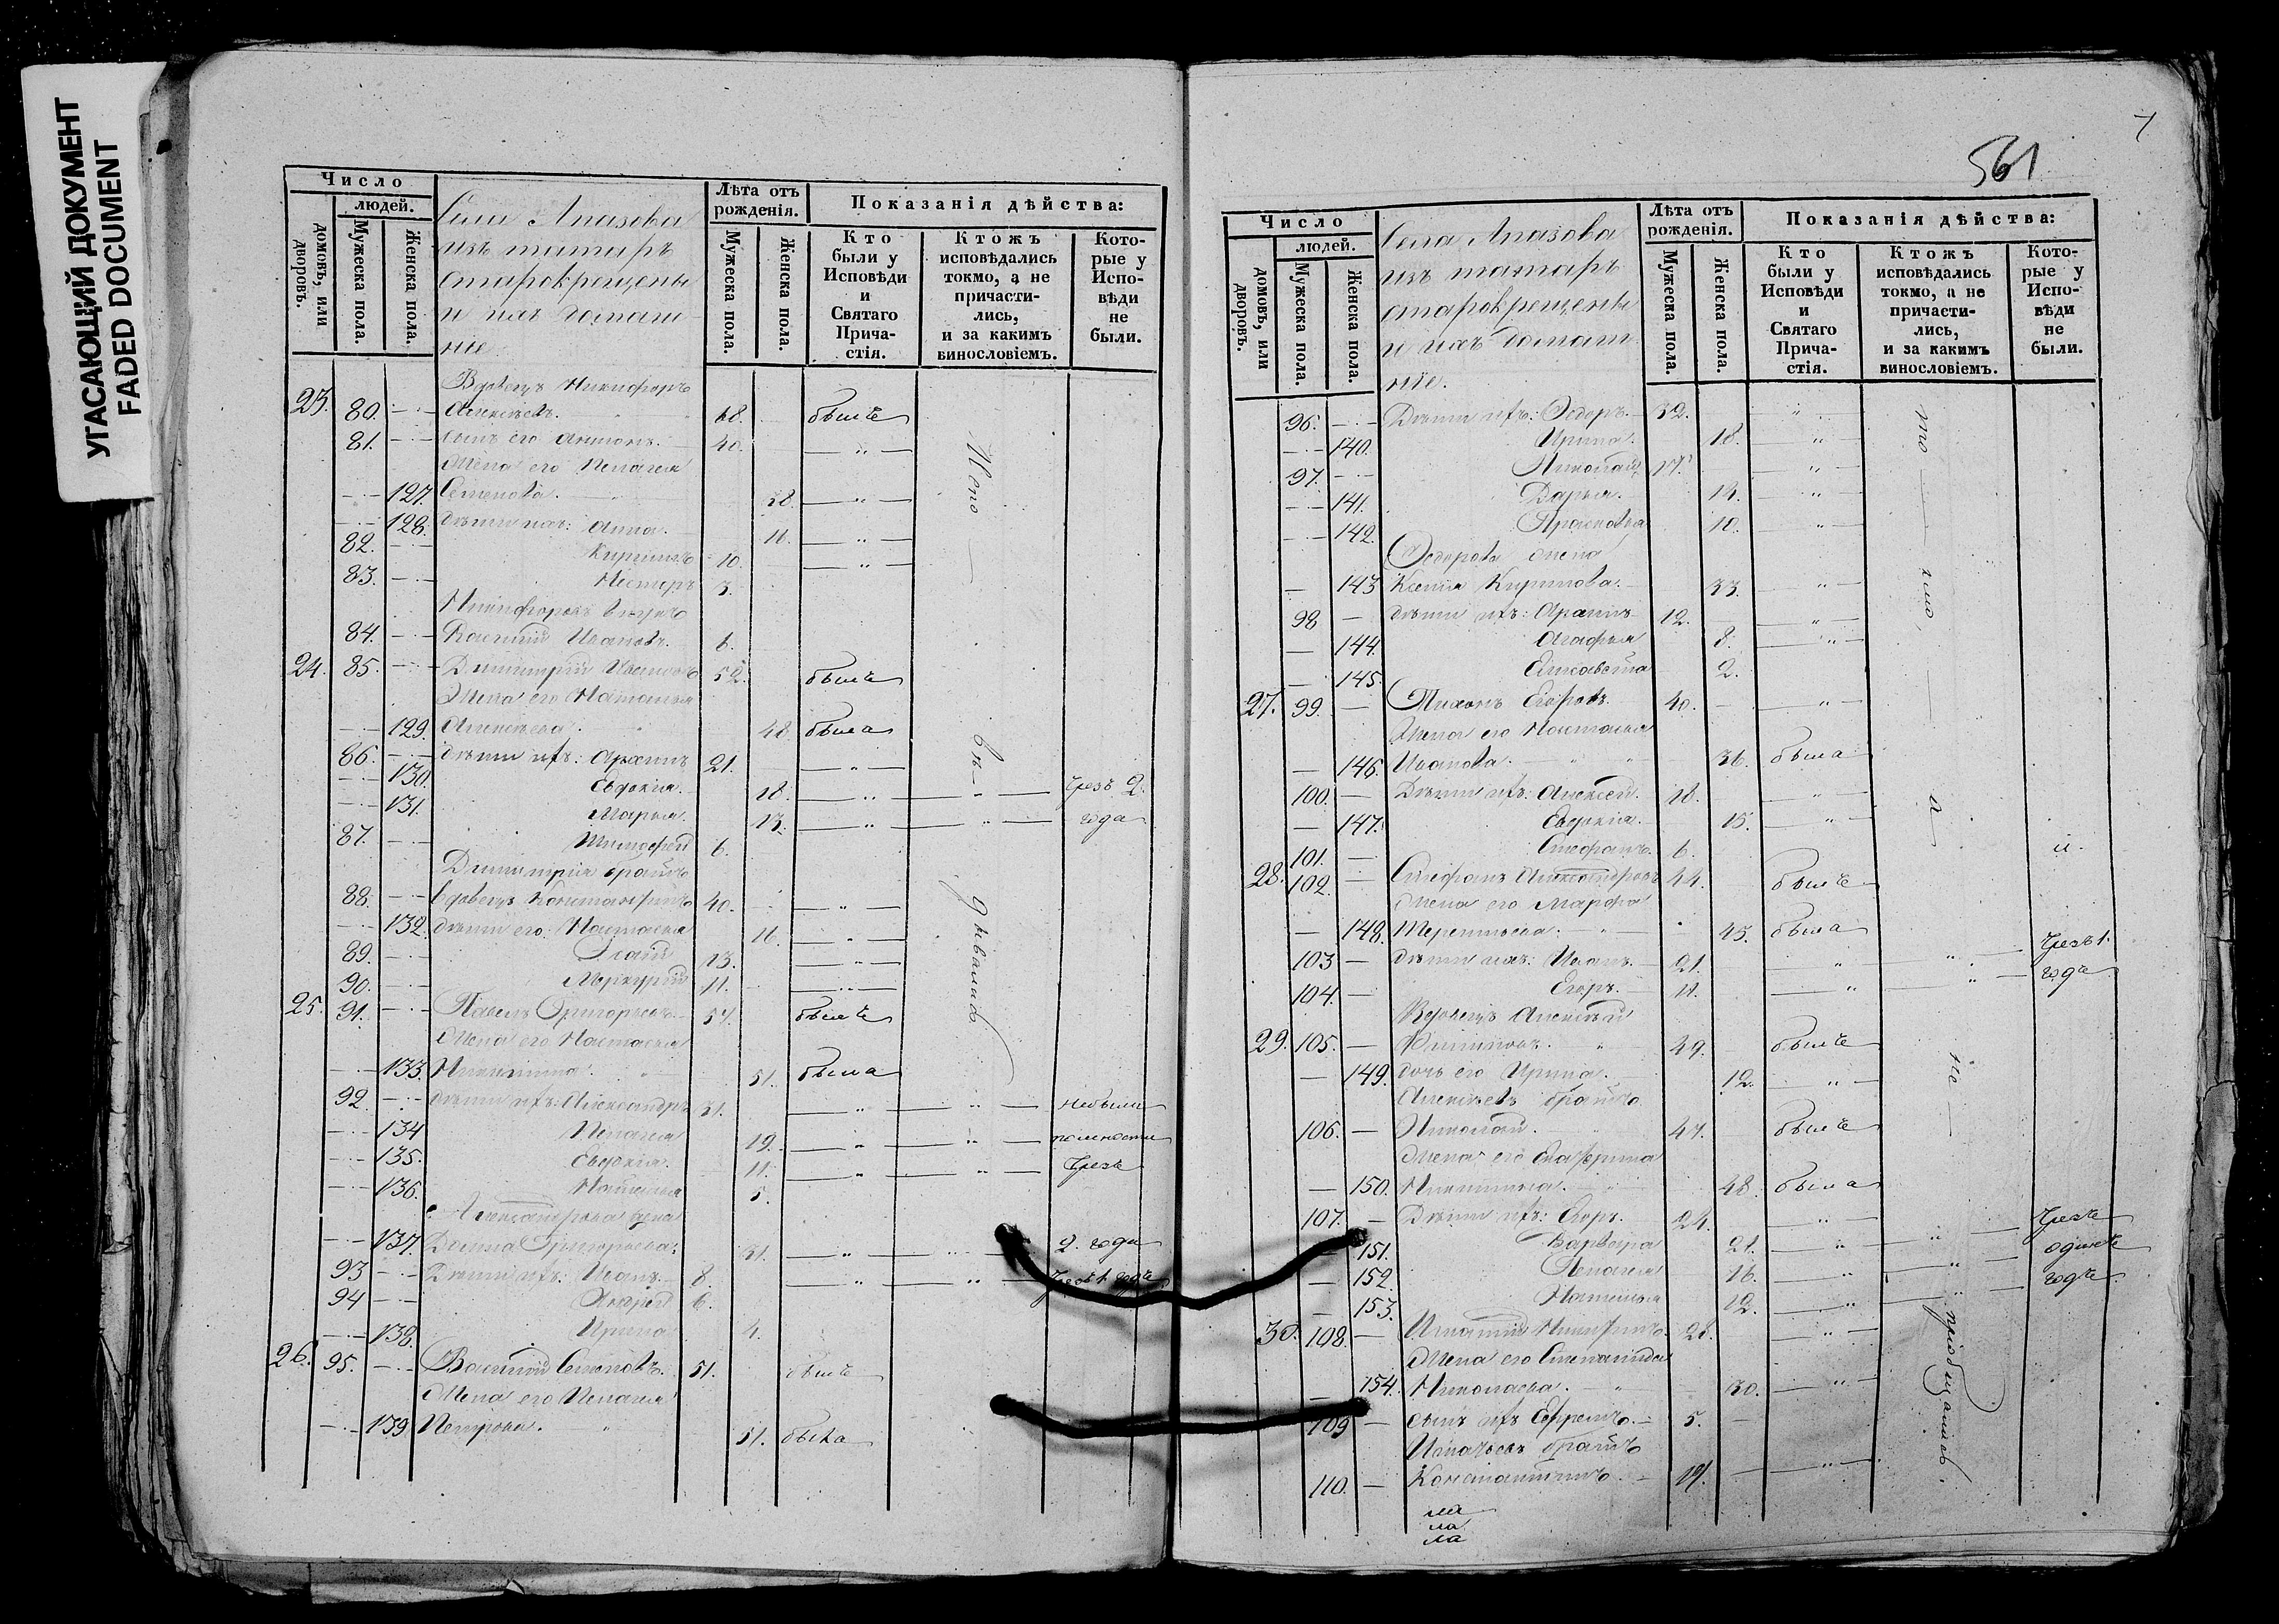 УГАСАЮЩИЙ ДОКУМЕНТ
FADED DOCUMENT
Число
людей.
домовъ, или дворовъ.
Мужеска пола.
Женска пола.
Села Апазова
изъ татаръ
старокрещены
и ихъ домаш
ніе.
Лѣта отъ рожденія.
Мужеска пола.
Женска пола.
Показанія дѣйства:
Кто были у Исповѣди и Святаго Прича-стія.
Ктожъ исповѣдались токмо, а не причасти-лись, и за какимъ винословіемъ.
Кото-рые у Испо-вѣди не были.
Вдовецъ Никифоръ
23. 80. Алексѣевъ. 68. былъ
81. сынъ его Антонъ. 40. — „ —
Жена его Пелагея
127. Семенова. 38. — „ —
128. дѣти ихъ: Анна. 11. — „ —
82. Кириллъ 10. — „ —
83. Несторъ 3.
Никифоровъ внукъ
84. Василий Ивановъ. 6.
24. 85. Димитрій 52. былъ
Жена его Наталья
129. Алексѣева. 48. была
86. дѣти ихъ: Архипъ 21. — „ —
130. Евдокія. 18. — „ — „ — Чрезъ 2.
131. Марья. 13. — „ — „ — года
87. Тимофей 6.
Димитрія братъ
88. вдовецъ Константинъ 40. — „ —
132. дѣти его: Настасья 16. — „ —
89. 13. — „ —
90. Меркурій 11. — „ —
25. 91. Павелъ Григорьевъ. 57. былъ
Жена его Настасья
133. Никитина. 51. была
92. дѣти ихъ: Александръ 31. — „ — „ — небыли
134 Пелагея 19. — „ — „ —
135. Евдокія. 11. — „ — „ — Чрезъ
136. Наталья 5.
Александрова жена
137. Григорьева: 31. — „ — „ — 2. года
93 Дѣти ихъ: Иванъ. 8. — „ — „ — Чрезъ 1. годъ
94 Андрей 6.
138. Ирина 4.
26. 95. Василій Семеновъ. 51. былъ
Жена его Пелагея
139 Петрова. 51. была
561
7
Число
людей.
домовъ, или дворовъ.
Мужеска пола.
Женска пола.
Села Апазова
изъ татаръ
старокрещены
и ихъ домаш
ніе.
Лѣта отъ рожденія.
Мужеска пола.
Женска пола.
Показанія дѣйства:
Кто были у Исповѣди и Святаго Прича-стія.
Ктожъ исповѣдались токмо, а не причасти-лись, и за какимъ винословіемъ.
Кото-рые у Испо-вѣди не были.
96. Дѣти ихъ: Ѳедоръ. 32. „
140. Ирина. 18. — „ —
97. Николай 17. — „ —
141. Дарья. 14. — „ —
142. Прасковья 10. — „ —
Ѳедорова жена
143 Ксенія Кирилова. 33. — „ —
98 дѣти ихъ: Архипъ 12. — „ —
144. Агафья 8. — „ —
145. Елисавета 2.
27. 99. Тихонъ Егоровъ. 40. — „ —
Жена его Настасья
146. Иванова. 36. была
100. Дѣти ихъ: Алексѣй. 18. — „ —
147. Евдокія. 15. — „ —
101. Стефанъ. 6.
28. 102. Стефанъ Александровъ 44. былъ
Жена его Марфа
148. Терентьева. 45. была
103 дѣти ихъ: Иванъ. 21. — „ — „ — Чрезъ 1.
104. Егоръ. 11. — „ — „ — годъ
Вдовецъ Алексѣй
29. 105. Филиповъ. 49. былъ
149. дочь его Ирина. 12. — „ —
Алексѣевъ братъ
106. Николай. 47. былъ
Жена его Екатерина
150. Никитина. 48. была
107. Дѣти ихъ: Егоръ. 24. — „ —
151. Варвара 21. — „ — „ — Чрезъ
152. Пелагея 16. — „ — „ — одинъ
153. Наталья 12. — „ — „ — годъ
30. 108. Игнатій 28. — „ —
Жена его Степанида
154. Николаева. 30. — „ —
109 сынъ ихъ Ефремъ. 5.
Игнатьевъ братъ
110. Константинъ. 19. — „ —
ла
ла
ла